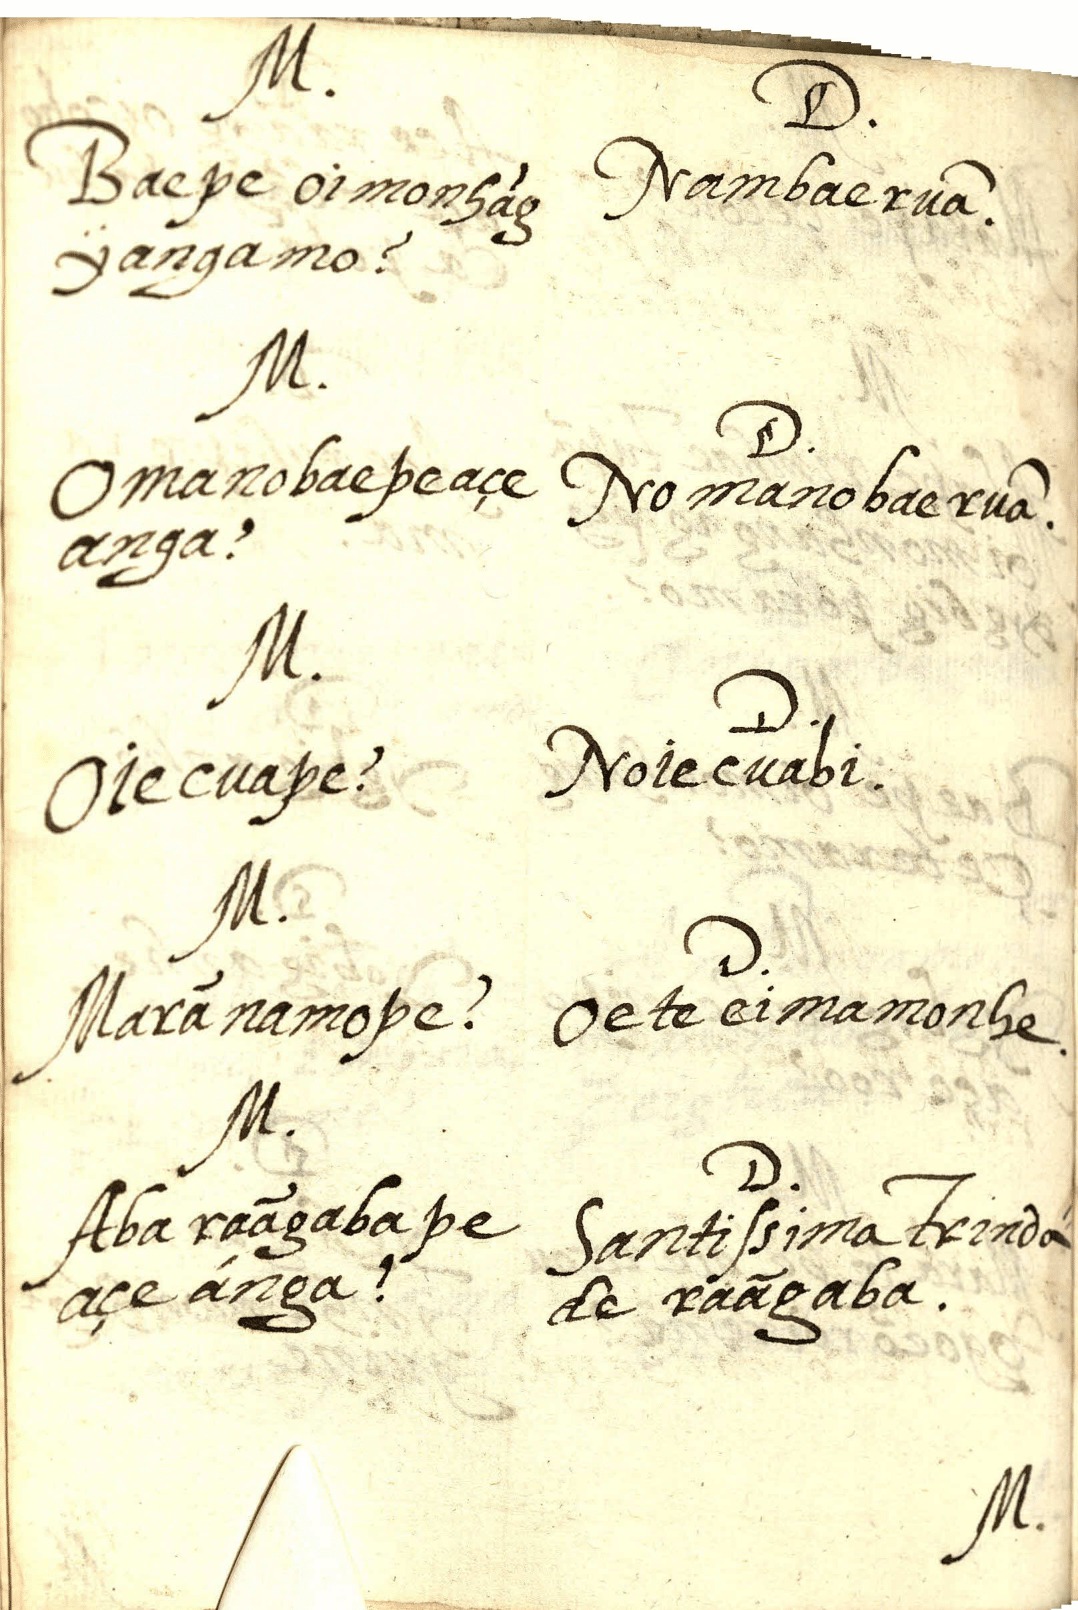 M.
Baepe oimonhág
ÿangamo?
D.
Nambaeruã.
M.
Omanobaepeaçe
anga?
D.
Nomanobaeruã.
M.
Oiecuape?
D.
Noiecuabi.
M.
Marãnamope?
D.
Oete eimamonhe.
M.
Aba raãgabape
açe ánga?
D.
Santiſsima Trinda
de raãgaba.
M.